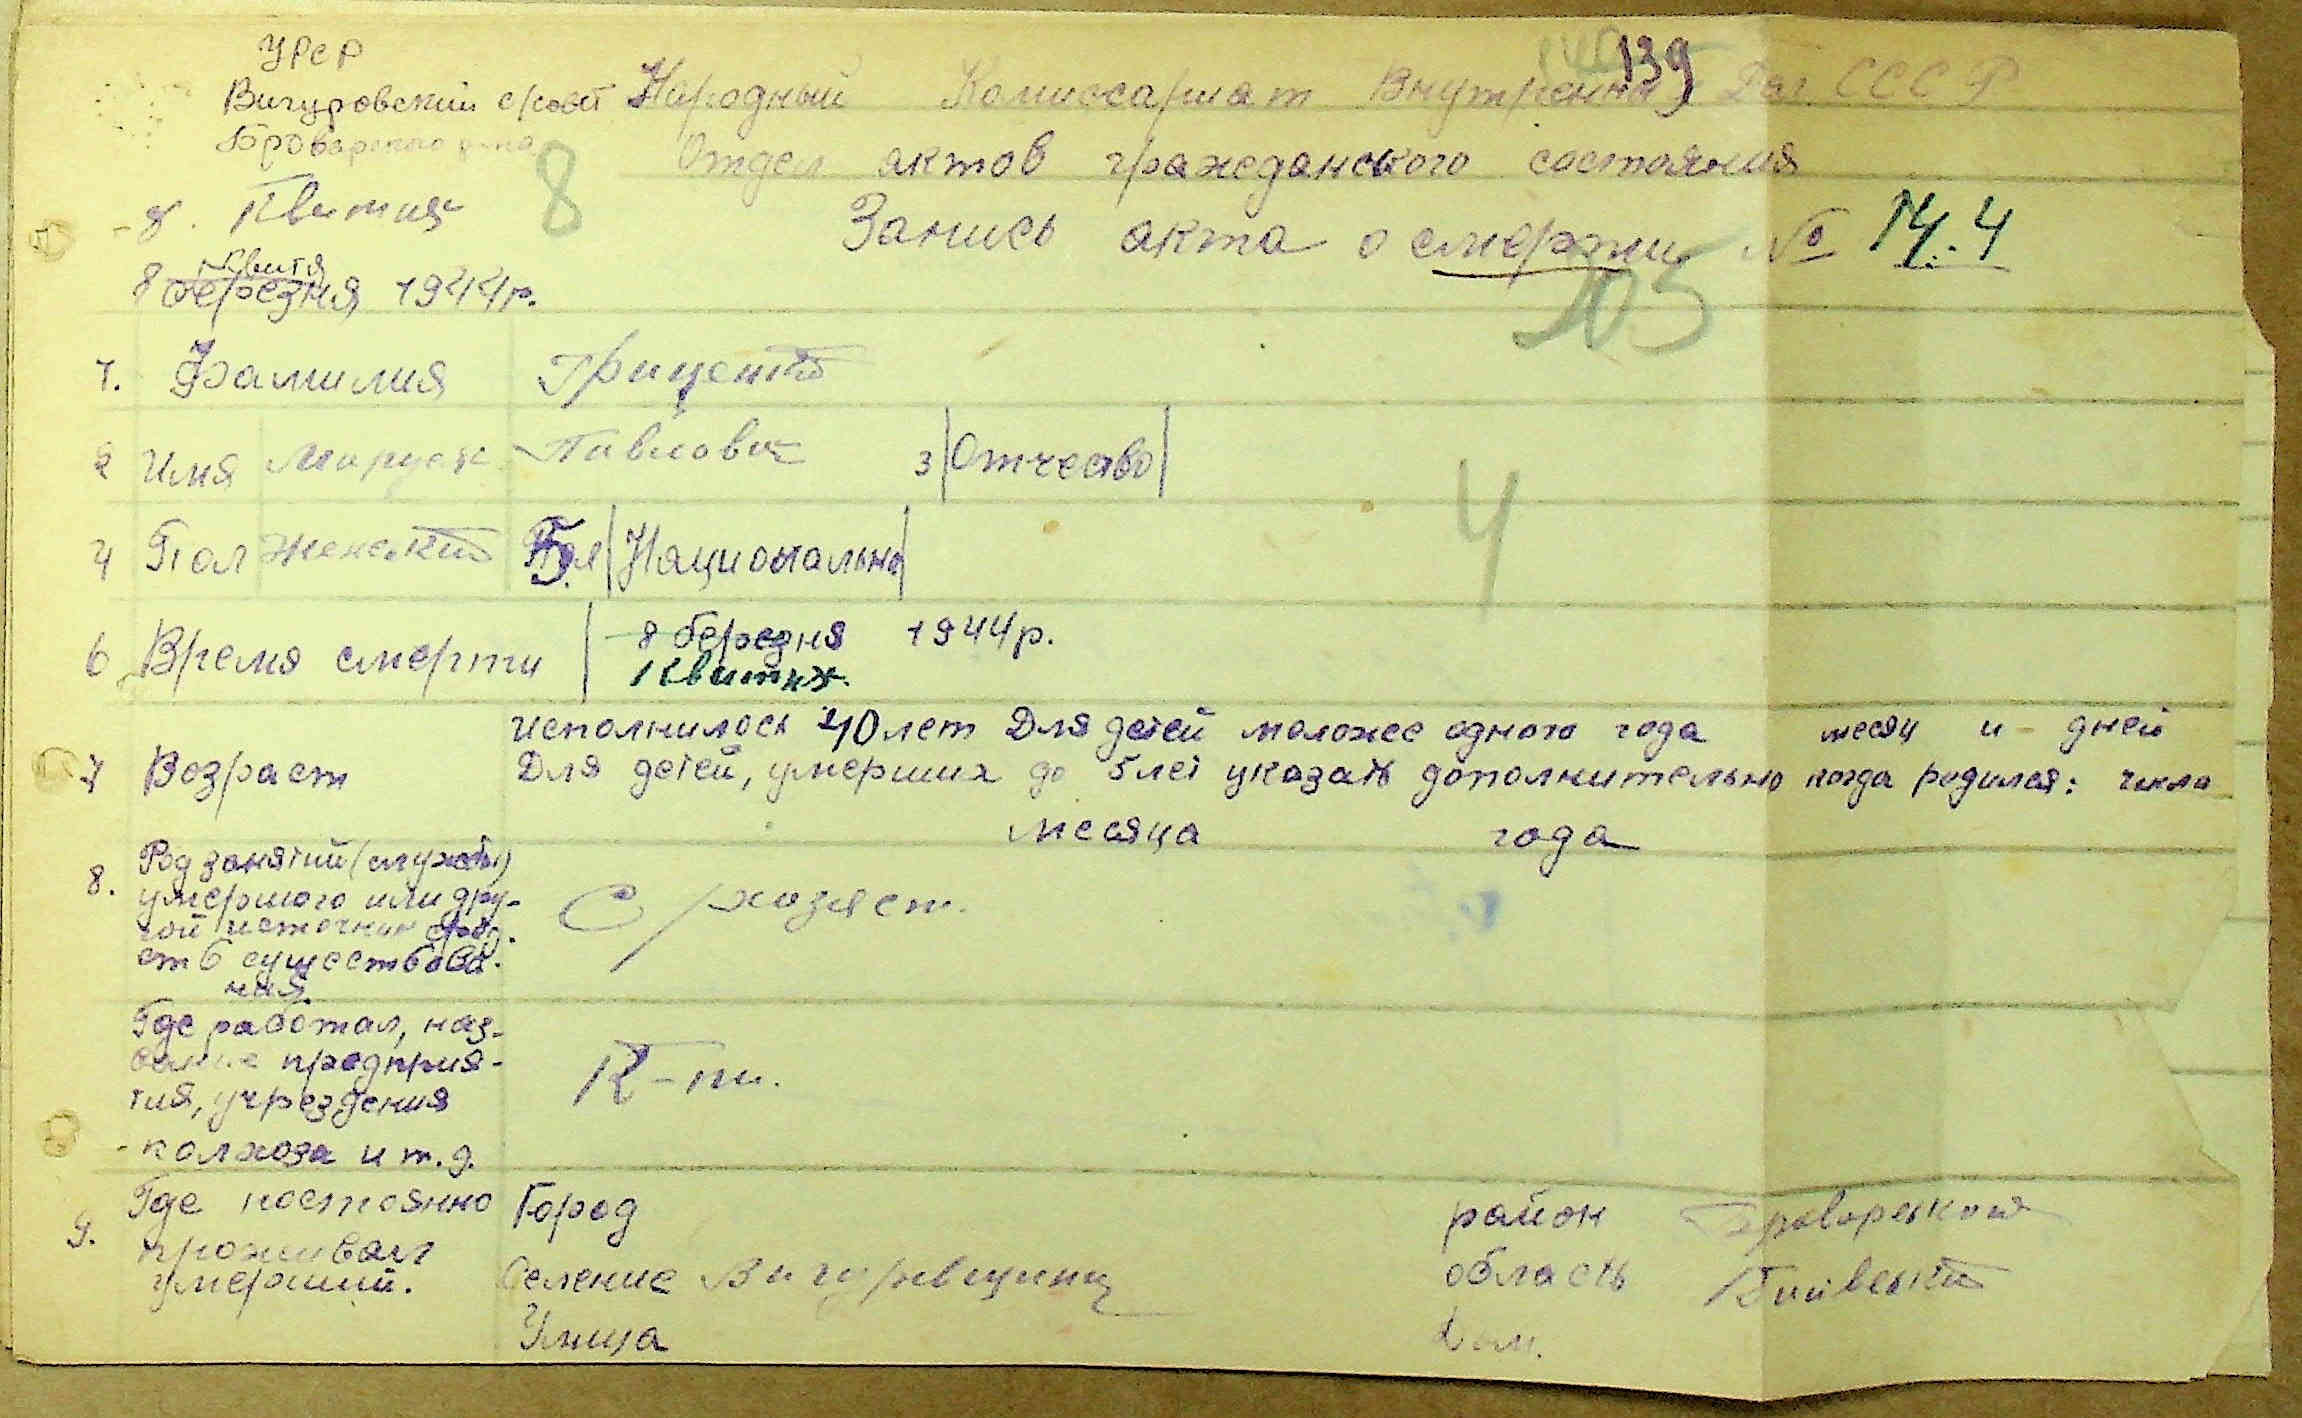 УРСР
139
Вигуровский с/совет Народный Комиссариат Внутренних Дел СССР
Броварского р-на
Отдел актов гражданського состояния
8
8. Квитня
Запись акта о смерти № 14.4
квитя
8 березня 1944р.
105
1. Фамилия Гриценко
2 Имя Маруся Павловна 3 Отчество
4 Пол Женский 5. Национально
4
6 Время смерти 8 березня 1944р.
Квитня.
7 Возраст исполнилось 40 лет Для детей моложее одного года месяц и дней
Для детей, умерших до 5 лет указать дополнительно когда родился: число
месяца года
8. Род занятий (службы)
умершого или дру-
гой источник сред.
ств существова-
ния.
С/хозяст.
Где работал, наз-
вание предприя-
тия, учреждения
колхоза и т.д.
К-ти.
9. Где постоянно
проживал
умерший.
Город район Броварський
Селение Вигуревщина область Київська
Улица Дом.